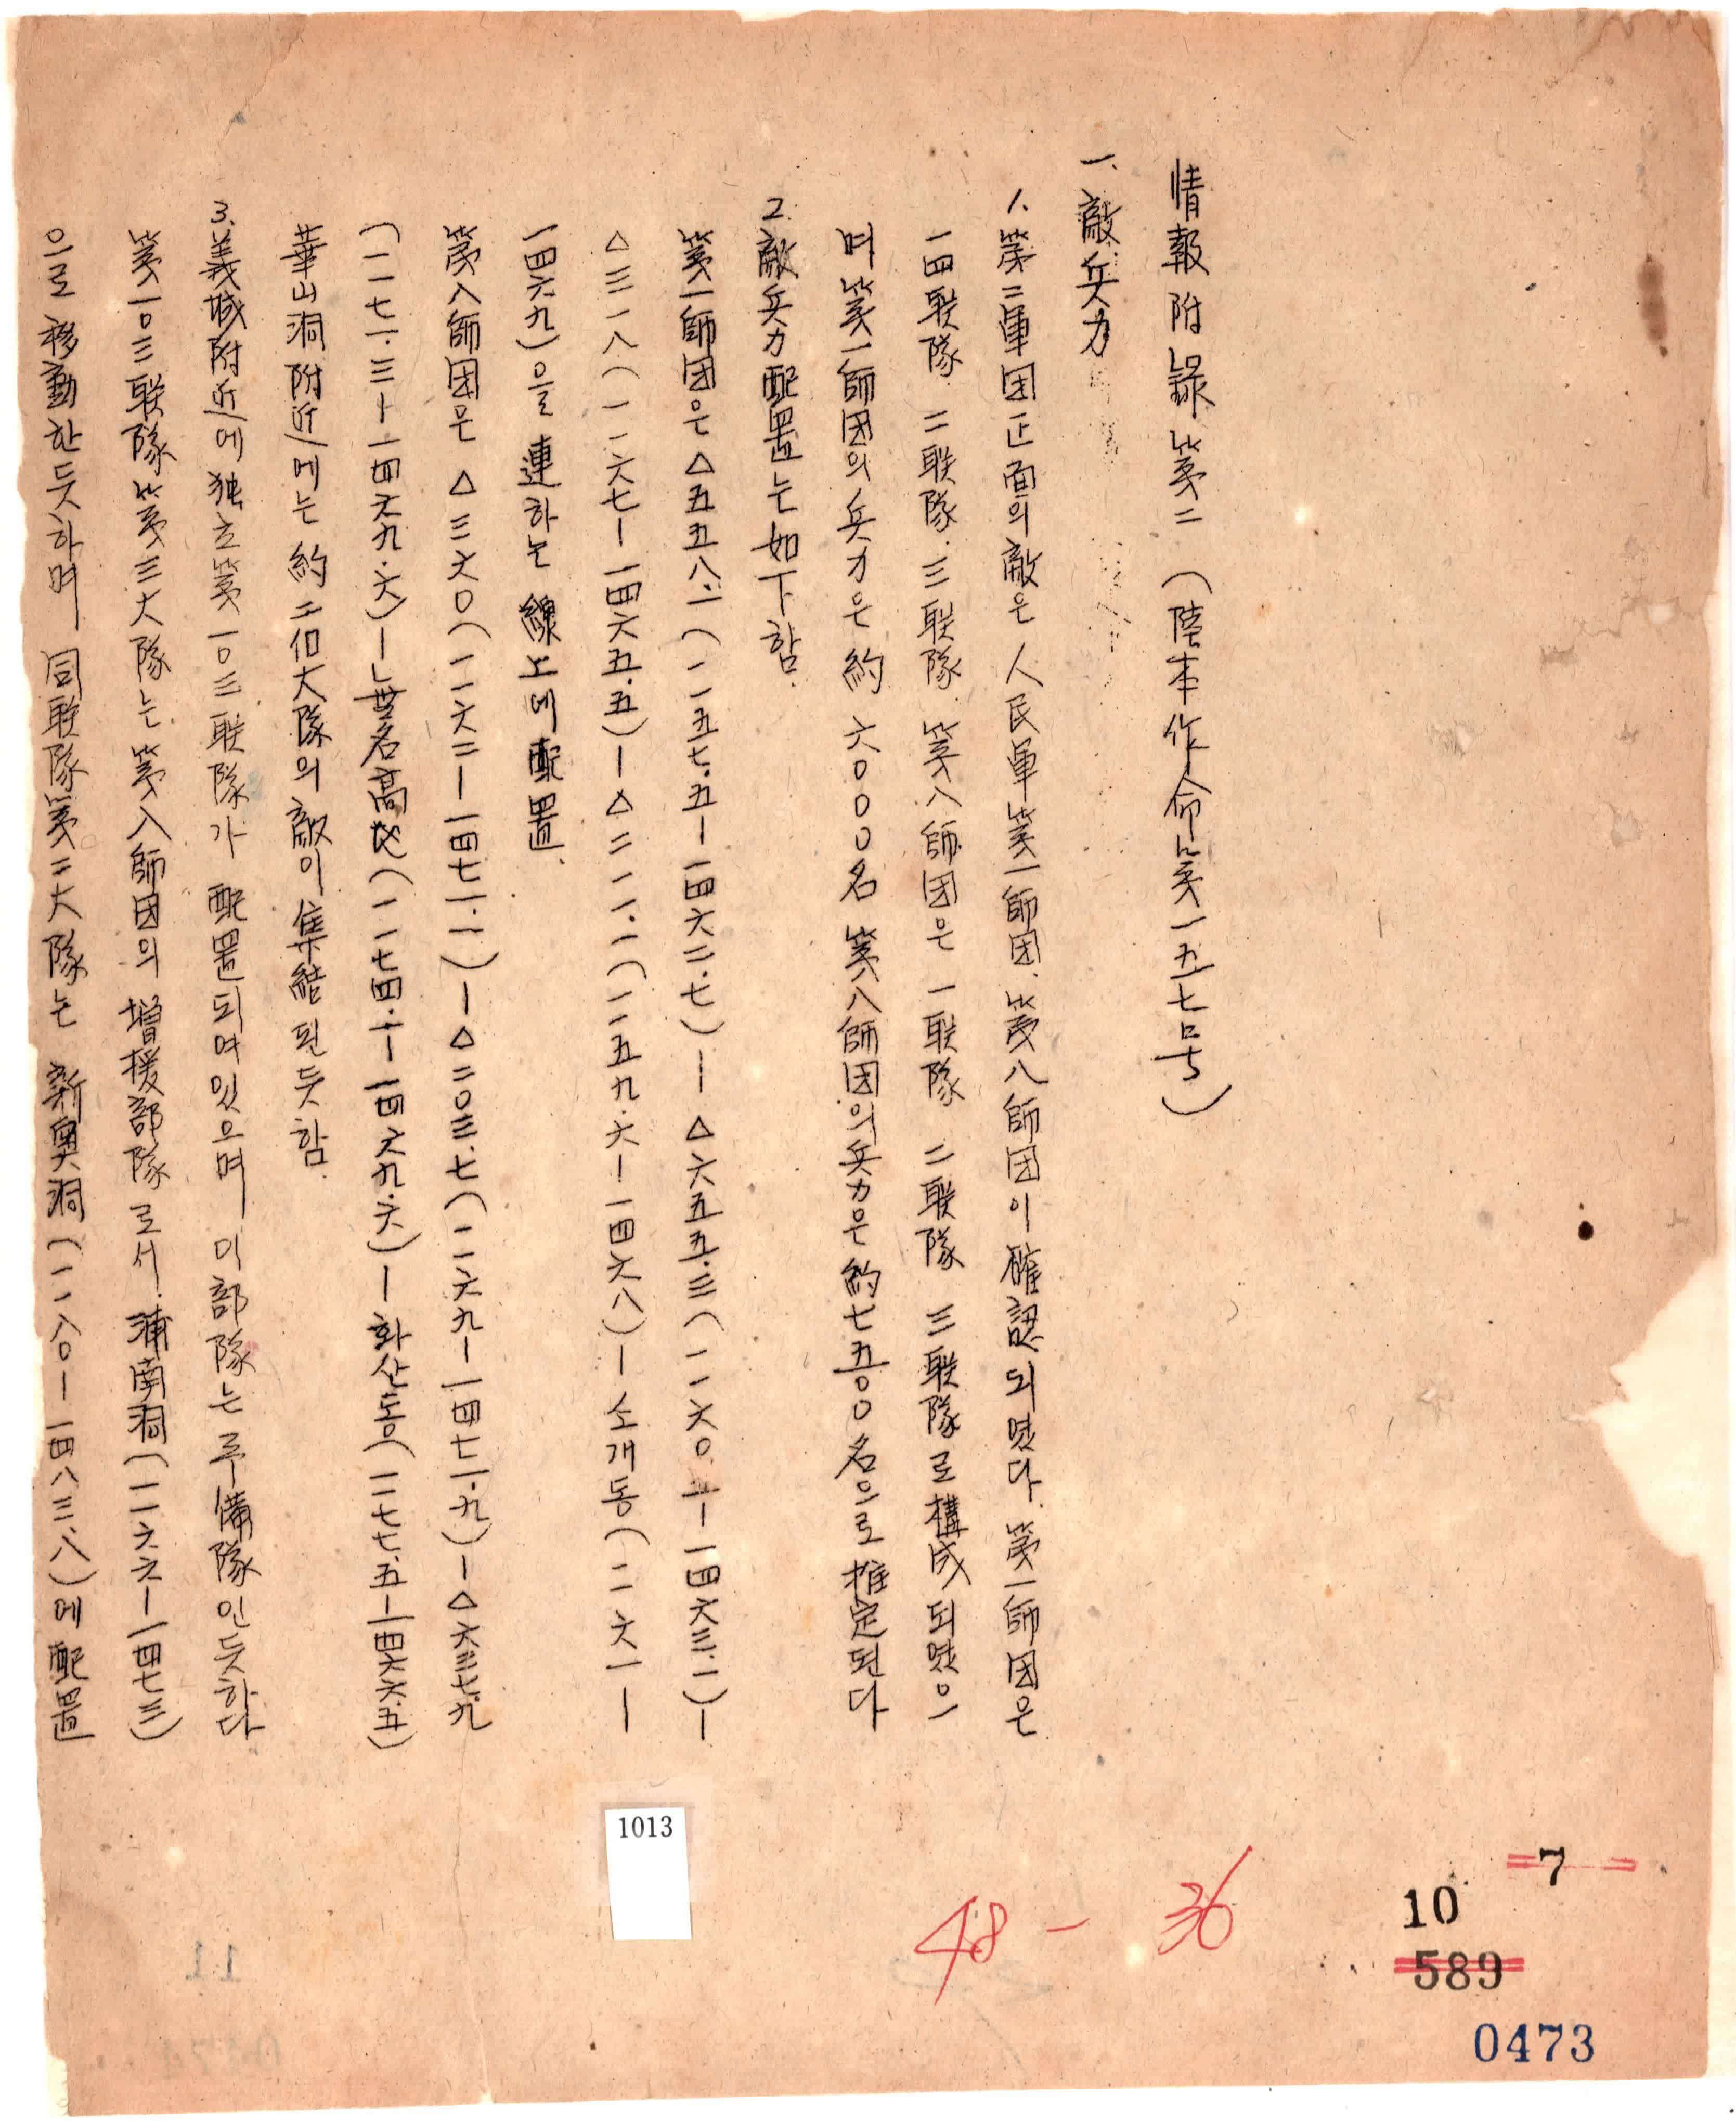 情報附錄 第二 (陸本作命 第一五七号)
一. 敵兵力
1. 第二軍団正面의 敵은 人民軍 第一師団. 第八師団이 確認되였다. 第一師団은
一四联隊. 二联隊. 三联隊. 第八師団은 一联隊 二联隊 三联隊로 構成되였으
며 第一師団의 兵力은 約 六〇〇〇名 第八師団의 兵力은 約七五〇〇名으로 推定된다
2. 敵兵力配置는 如下함.
第一師団은 △五五八.二(一一五七.五―一四六二.七)―△六五五.三(一一六〇.五―一四六三.一)―
△三一八(一一六七―一四六五.五)―△二一一.一(一一五九.六―一四六八)―소개동(一一六一―
一四六九)을 連하는 線上에 配置.
第八師団은 △三六〇(一一六二―一四七一.一)―△二〇三.七(一一六九―一四七一.九)―△六三七.九
(一一七一.三―一四六九.六)―無名高地(一一七四.十―一四六九.六)―화산동(一一七七.五―一四六六.五)
華山洞 附近에는 約 二個大隊의 敵이 集結된 듯함.
3. 義城附近에 独立第一〇三联隊가 配置되여있으며 이部隊는 予備隊인듯하다
第一〇三联隊 第三大隊는 第八師団의 增援部隊로서. 浦南洞(一一六六―一四七三)
으로 移動한듯하며 同联隊第二大隊는 新奧洞(一一八〇―一四八三.八)에 配置
1013
48 - 36
7
10
589
0473